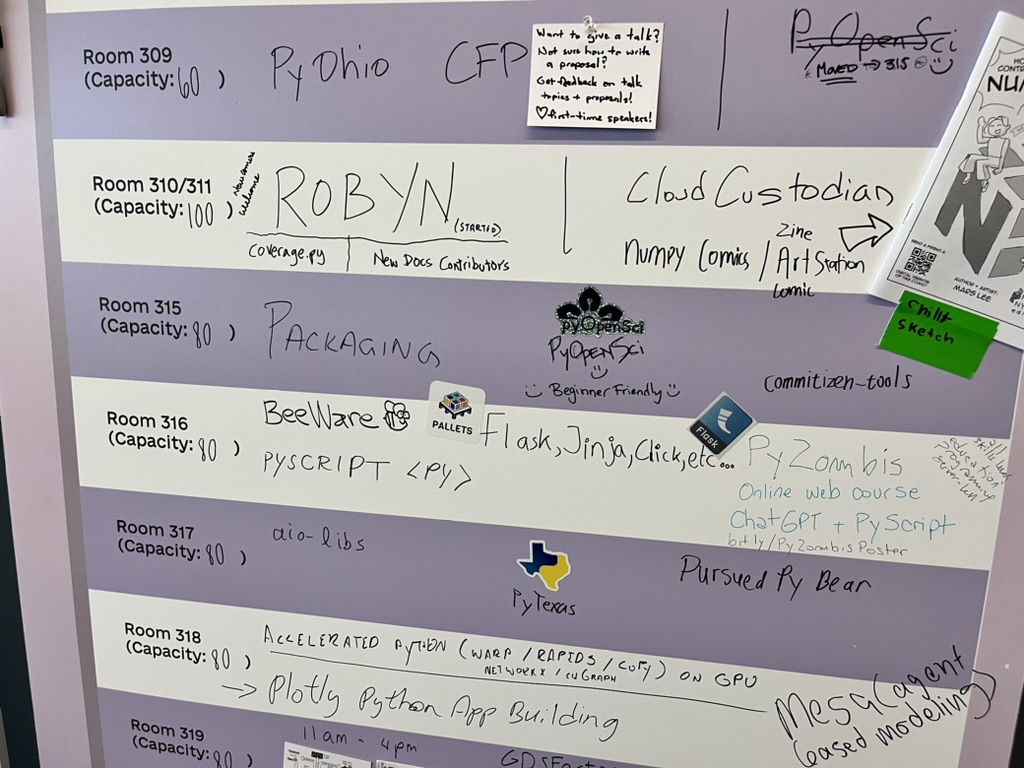 Room 309
(Capacity: 60 )
PyOhio CFP
Want to give a talk?
Not sure how to write
a proposal?
Get feedback on talk
topics + proposals!
♡first-time speakers!
PyOpenSci
* MOVED → 315
Room 310/311
(Capacity: 100 )
Newcomers
welcome
ROBYN
(STARTED)
coverage.py | New Docs Contributors
Cloud Custodian
Numpy Comics / Zine
ArtStation
comic
AUTHOR + ARTIST:
MARS LEE
Chillt
sketch
Room 315
(Capacity: 80 )
PACKAGING
pyOpenSci
PyOPENSci
Beginner Friendly
commitizen-tools
Room 316
(Capacity: 80 )
BeeWare
PYSCRIPT <PY>
PALLETS
Flask, Jinja, Click, etc...
Flask
PyZombis
Online web course
ChatGPT + PyScript
bit.ly/PyZombisPoster
all
skills
education
programming
Room 317
(Capacity: 80 )
aio-libs
PyTexas
Pursued Py Bear
Room 318
(Capacity: 80 )
ACCELERATED PYTHON (WARP / RAPIDS / CUPY) ON GPU
NETWORKX / CUGRAPH
→ Plotly Python App Building
Mesa (agent
based modeling)
Room 319
(Capacity: 80 )
11am - 4pm